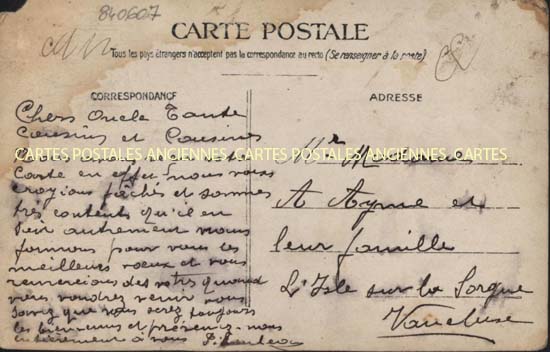 840607
CARTE POSTALE
Tous les pays étrangers n'acceptent pas la correspondance au recto (Se renseigner à la poste)
CORRESPONDANCE
ADRESSE
Chers Oncle Tante
Cousins et Cousines
CARTES POSTALES ANCIENNES CARTES POSTALES ANCIENNES CARTES
Carte en effet nous vous
croyions fâchés et sommes
très contents qu'il en
soit autrement nous
formons pour vous les
meilleurs vœux et vous
remercions des votres quand
vous voudrez venir vous
savez que vous serez toujours
les bienvenus et prévenez-nous
entièrement à vous
Mr
A Ayme et
leur famille
L'Isle sur la Sorgue
Vaucluse